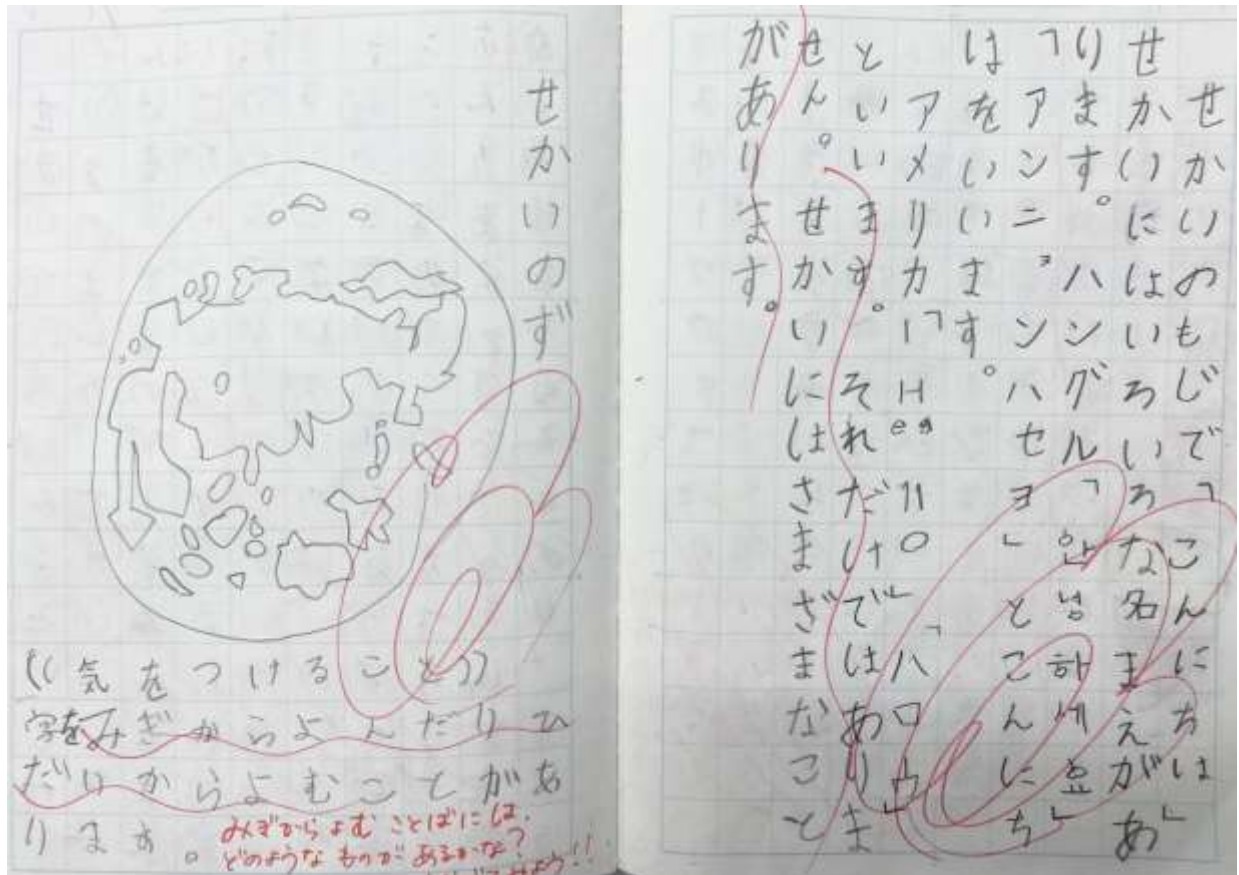 せかいのもじで「こんにちは」
せかいにはいろいろな名まえがあ
ります。ハングル「안녕하세요」
「アンニョンハセヨ」とこんにち
はをいいます。
アメリカ「Hello」「ハロウ」
といいます。それだけではありま
せん。せかいにはさまざまなこと
があります。
せかいのず
((気をつけること))
字をみぎからよんだりひ
だりからよむことがあ
ります。
みぎからよむことばには、
どのようなものがあるかな?
みよう!!